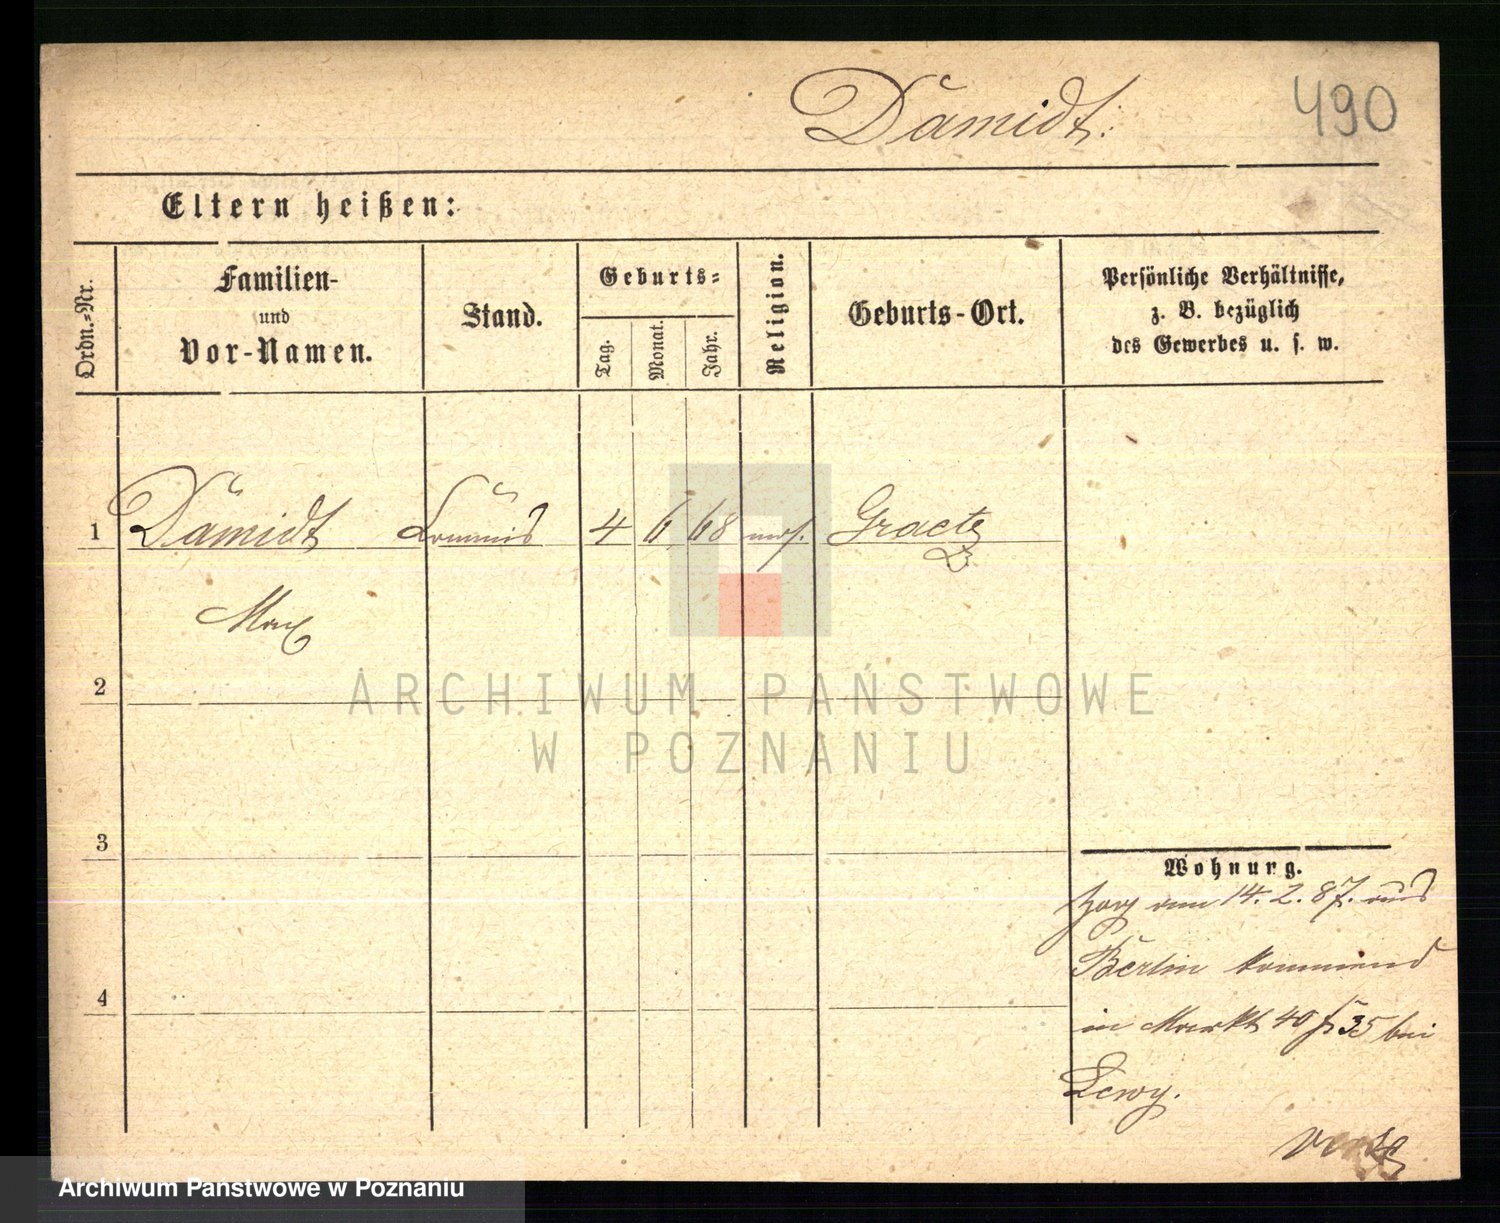 Dämidt.
490
Eltern heißen:
Ordn.=Nr.
Familien-
und
Vor-Namen.
Stand.
Geburts=
Tag.
Monat.
Jahr.
Religion.
Geburts-Ort.
Persönliche Verhältnisse,
z. B. bezüglich
des Gewerbes u. s. w.
1 Dämidt Commis 4 6 68 mos. Graetz
Max
2
3
4
Wohnung.
Zog am 14. 2. 87. aus
Berlin kommend
in Markt 40 35 bei
Lewy.
ARCHIWUM PAŃSTWOWE
W POZNANIU
Archiwum Państwowe w Poznaniu